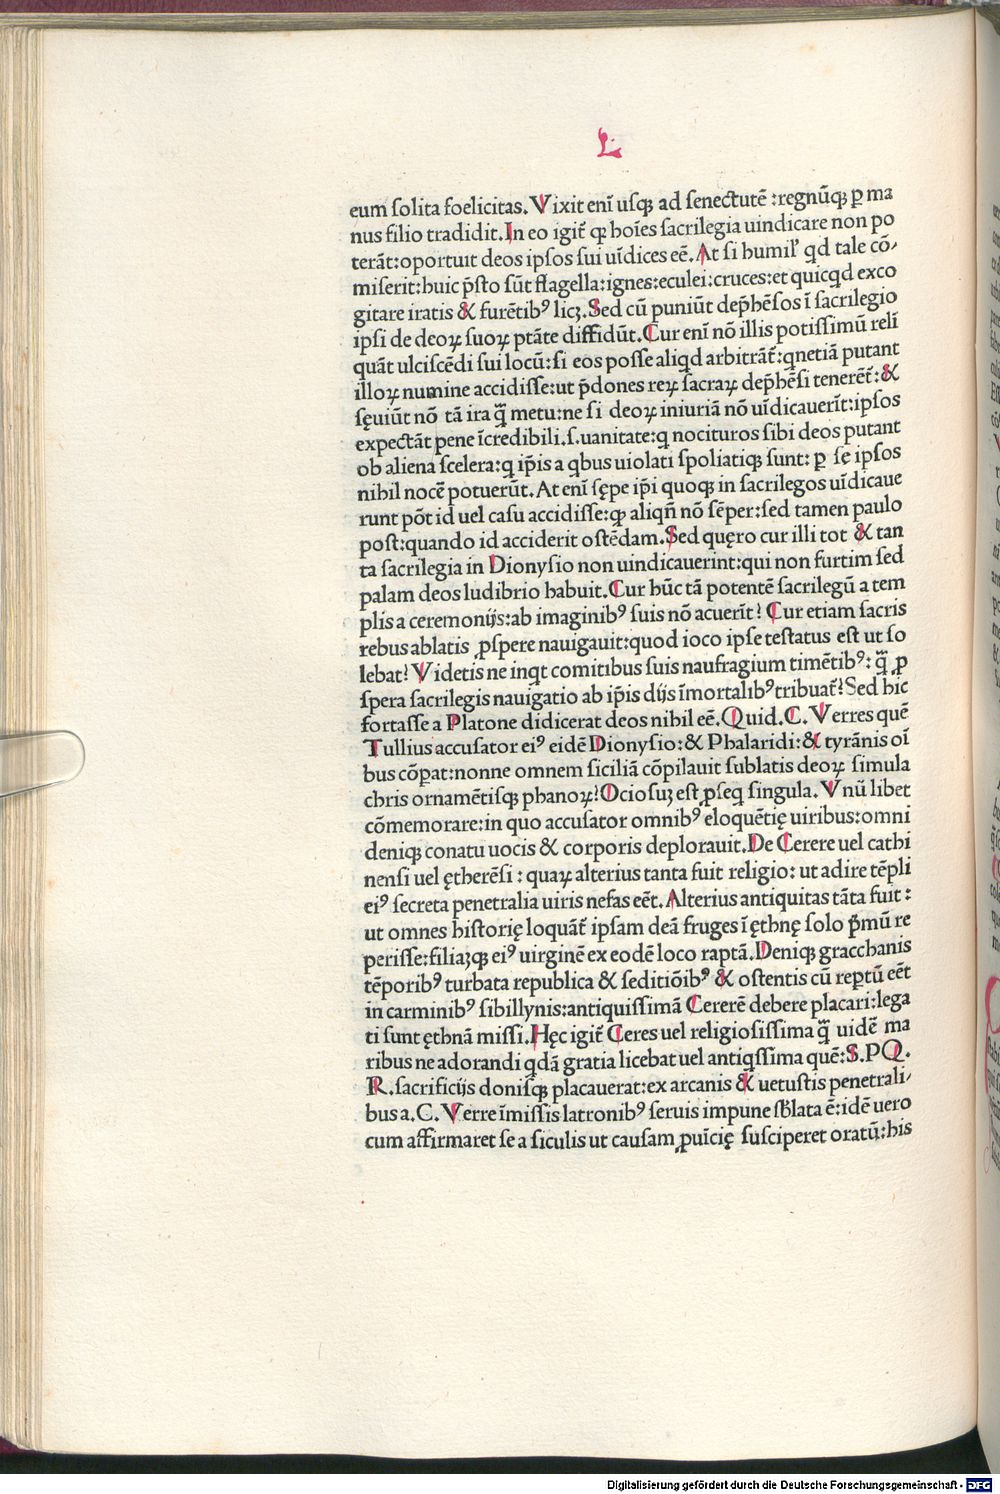 L.
eum solita foelicitas. Vixit enī usqꝫ ad senectutē: regnūqꝫ ꝑ ma
nus filio tradidit. In eo igit̄ qꝫ hoīes sacrilegia uindicare non po
terāt: oportuit deos ipsos sui uīdices eē. At si humil̓ qd tale cō-
miserit: huic p̄sto sūt flagella: ignes: eculei: cruces: et quicqd exco
gitare iratis & furētibꝰ licꝫ. Sed cū puniūt dep̄hēsos ī sacrilegio
ipsi de deoꝝ suoꝝ ptāte diffidūt. Cur enī nō illis potissimū reli
quāt ulciscēdi sui locū: si eos posse aliqd arbitrāt̄: qnetiā putant
illoꝝ numine accidisse: ut p̄dones reꝝ sacraꝝ dep̄hēsi tenerēt̄: &
sęuiūt nō tā ira q̄̃ metu: ne si deoꝝ iniuriā nō uīdicauerīt: ipsos
expectāt pene īcredibili. s. uanitate: q nocituros sibi deos putant
ob aliena scelera: q ip̄is a qbus uiolati spoliatiqꝫ sunt: ꝑ se ipsos
nibil nocē potuerūt. At enī sępe ip̄i quoqꝫ in sacrilegos uīdicaue
runt pōt id uel casu accidisse: qꝫ aliqn̄ nō sēper: sed tamen paulo
post: quando id acciderit ostēdam. Sed quęro cur illi tot & tan
ta sacrilegia in Dionysio non uindicauerint: qui non furtim sed
palam deos ludibrio habuit. Cur hūc tā potentē sacrilegū a tem
plis a ceremonijs: ab imaginibꝰ suis nō acuerīt? Cur etiam sacris
rebus ablatis ꝓspere nauigauit: quod ioco ipse testatus est ut so
lebat? Videtis ne inqt comitibus suis naufragium timētibꝰ: q̄̃ ꝓ
spera sacrilegis nauigatio ab ip̄is dijs īmortalibꝰ tribuat̄? Sed hic
fortasse a Platone didicerat deos nihil eē. Quid. C. Verres quē
Tullius accusator eiꝰ eidē Dionysio: & Phalaridi: & tyrānis oī
bus cōpat: nonne omnem siciliā cōpilauit sublatis deoꝝ simula
chris ornamētisqꝫ phanoꝝ? Ociosuꝫ est ꝓseq singula. Vnū libet
cōmemorare: in quo accusator omnibꝰ eloquētię uiribus: omni
deniqꝫ conatu uocis & corporis deplorauit. De Cerere uel cathi
nensi uel ętherēsi: quaꝝ alterius tanta fuit religio: ut adire tēpli
eiꝰ secreta penetralia uiris nefas eēt. Alterius antiquitas tāta fuit:
ut omnes historię loquāt̄ ipsam deā fruges ī ęthnę solo p̄mū re
perisse: filiaꝫqꝫ eiꝰ uirginē ex eodē loco raptā. Deniqꝫ gracchanis
tēporibꝰ turbata republica & seditiōibꝰ & ostentis cū reptū eēt
in carminibꝰ sibillynis: antiquissimā Cererē debere placari: lega
ti sunt ęthnā missi. Hęc igit̄ Ceres uel religiosissima q̄̃ uidē ma
ribus ne adorandi qdā gratia licebat uel antiqssima quē: S. P Q.
R. sacrificijs donisqꝫ placauerat: ex arcanis & uetustis penetrali-
bus a. C. Verre īmissis latronibꝰ seruis impune sb̄lata ē: idē uero
cum affirmaret se a siculis ut causam ꝓuīcię susciperet oratū: his
Digitalisierung gefördert durch die Deutsche Forschungsgemeinschaft - DFG